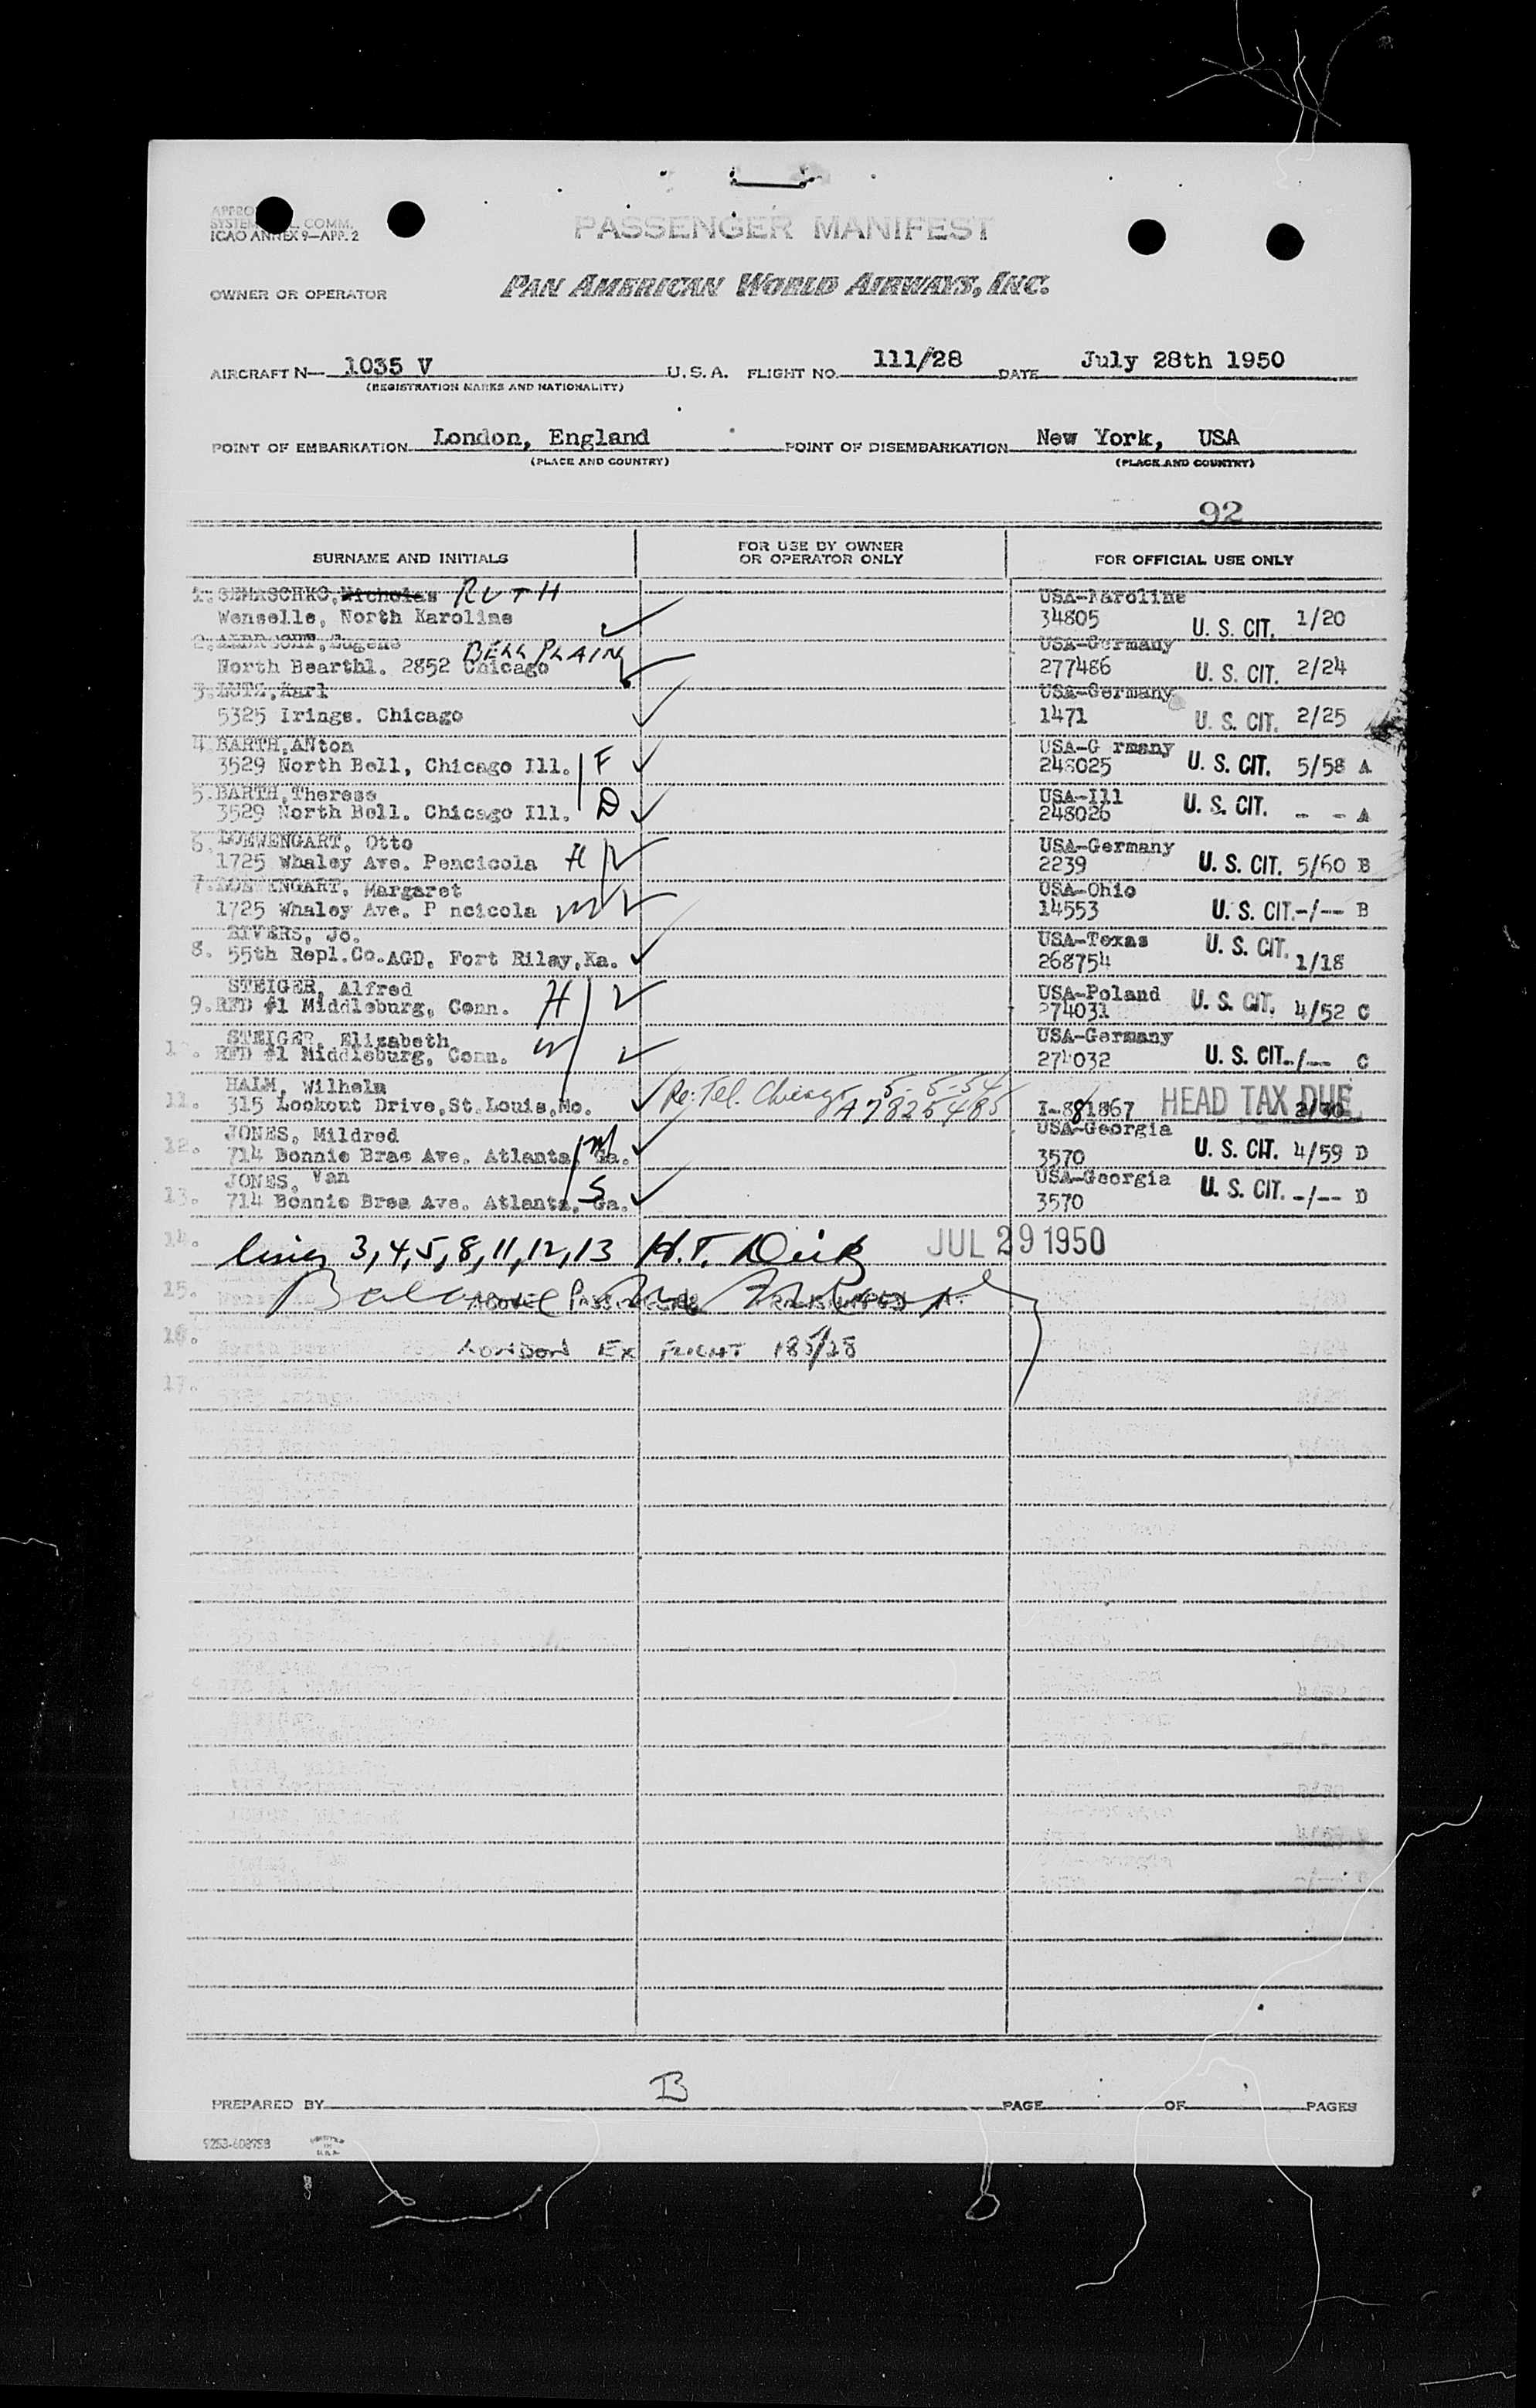 ICAO ANNEX 9—APP. 2
PASSENGER MANIFEST
OWNER OR OPERATOR
PAN AMERICAN WORLD AIRWAYS, INC.
AIRCRAFT N— 1035 V U. S. A. FLIGHT NO. 111/28 DATE July 28th 1950
(REGISTRATION MARKS AND NATIONALITY)
POINT OF EMBARKATION London, England POINT OF DISEMBARKATION New York, USA
(PLACE AND COUNTRY) (PLACE AND COUNTRY)
92
SURNAME AND INITIALS FOR USE BY OWNER OR OPERATOR ONLY FOR OFFICIAL USE ONLY
1. SEMASCHKO, Nicholas RUTH USA-Karoline
Wenselle, North Karoline 34805 U. S. CIT. 1/20
2. Eugene USA-Germany
BELL PLAIN
North Bearthl. 2852 Chicago 277486 U. S. CIT. 2/24
3. LUTZ, Karl USA-Germany
5325 Irings. Chicago 1471 U. S. CIT. 2/25
4. BARTH, ANton USA-G rmany
3529 North Bell, Chicago Ill. F 248025 U. S. CIT. 5/58 A
5. BARTH, Therese USA-Ill
3529 North Bell. Chicago Ill. D 248026 U. S. CIT. - - A
6. LOEWENGART, Otto USA-Germany
1725 Whaley Ave. Pencicola H 2239 U. S. CIT. 5/60 B
7. LOEWENGART, Margaret USA-Ohio
1725 Whaley Ave. P ncicola W 14553 U. S. CIT. -/-- B
RIVERS, Jo. USA-Texas
8. 55th Repl.Co.AGD, Fort Riley,Ka. 268754 U. S. CIT. 1/18
STEIGER, Alfred USA-Poland
9. RFD #1 Middleburg, Conn. H 274031 U. S. CIT. 4/52 C
STEIGER, Elizabeth USA-Germany
10. RFD #1 Middleburg, Conn. W 274032 U. S. CIT. -/-- C
HALM, Wilhelm Re: Tel. Chicago 5-5-54
11. 315 Lookout Drive,St.Louis,Mo. A7825485 I-881867 HEAD TAX DUE
JONES, Mildred USA-Georgia
12. 714 Bonnie Brae Ave. Atlanta, Ga. M 3570 U. S. CIT. 4/59 D
JONES, Van USA-Georgia
13. 714 Bonnie Brea Ave. Atlanta, Ga. S 3570 U. S. CIT. -/-- D
14. lines 3,4,5,8,11,12,13 H.T. JUL 29 1950
15. ABOVE PASSENGERS TRANSHIPPED AT
16. LONDON EX FLIGHT 185/28
17.
B
PREPARED BY PAGE OF PAGES